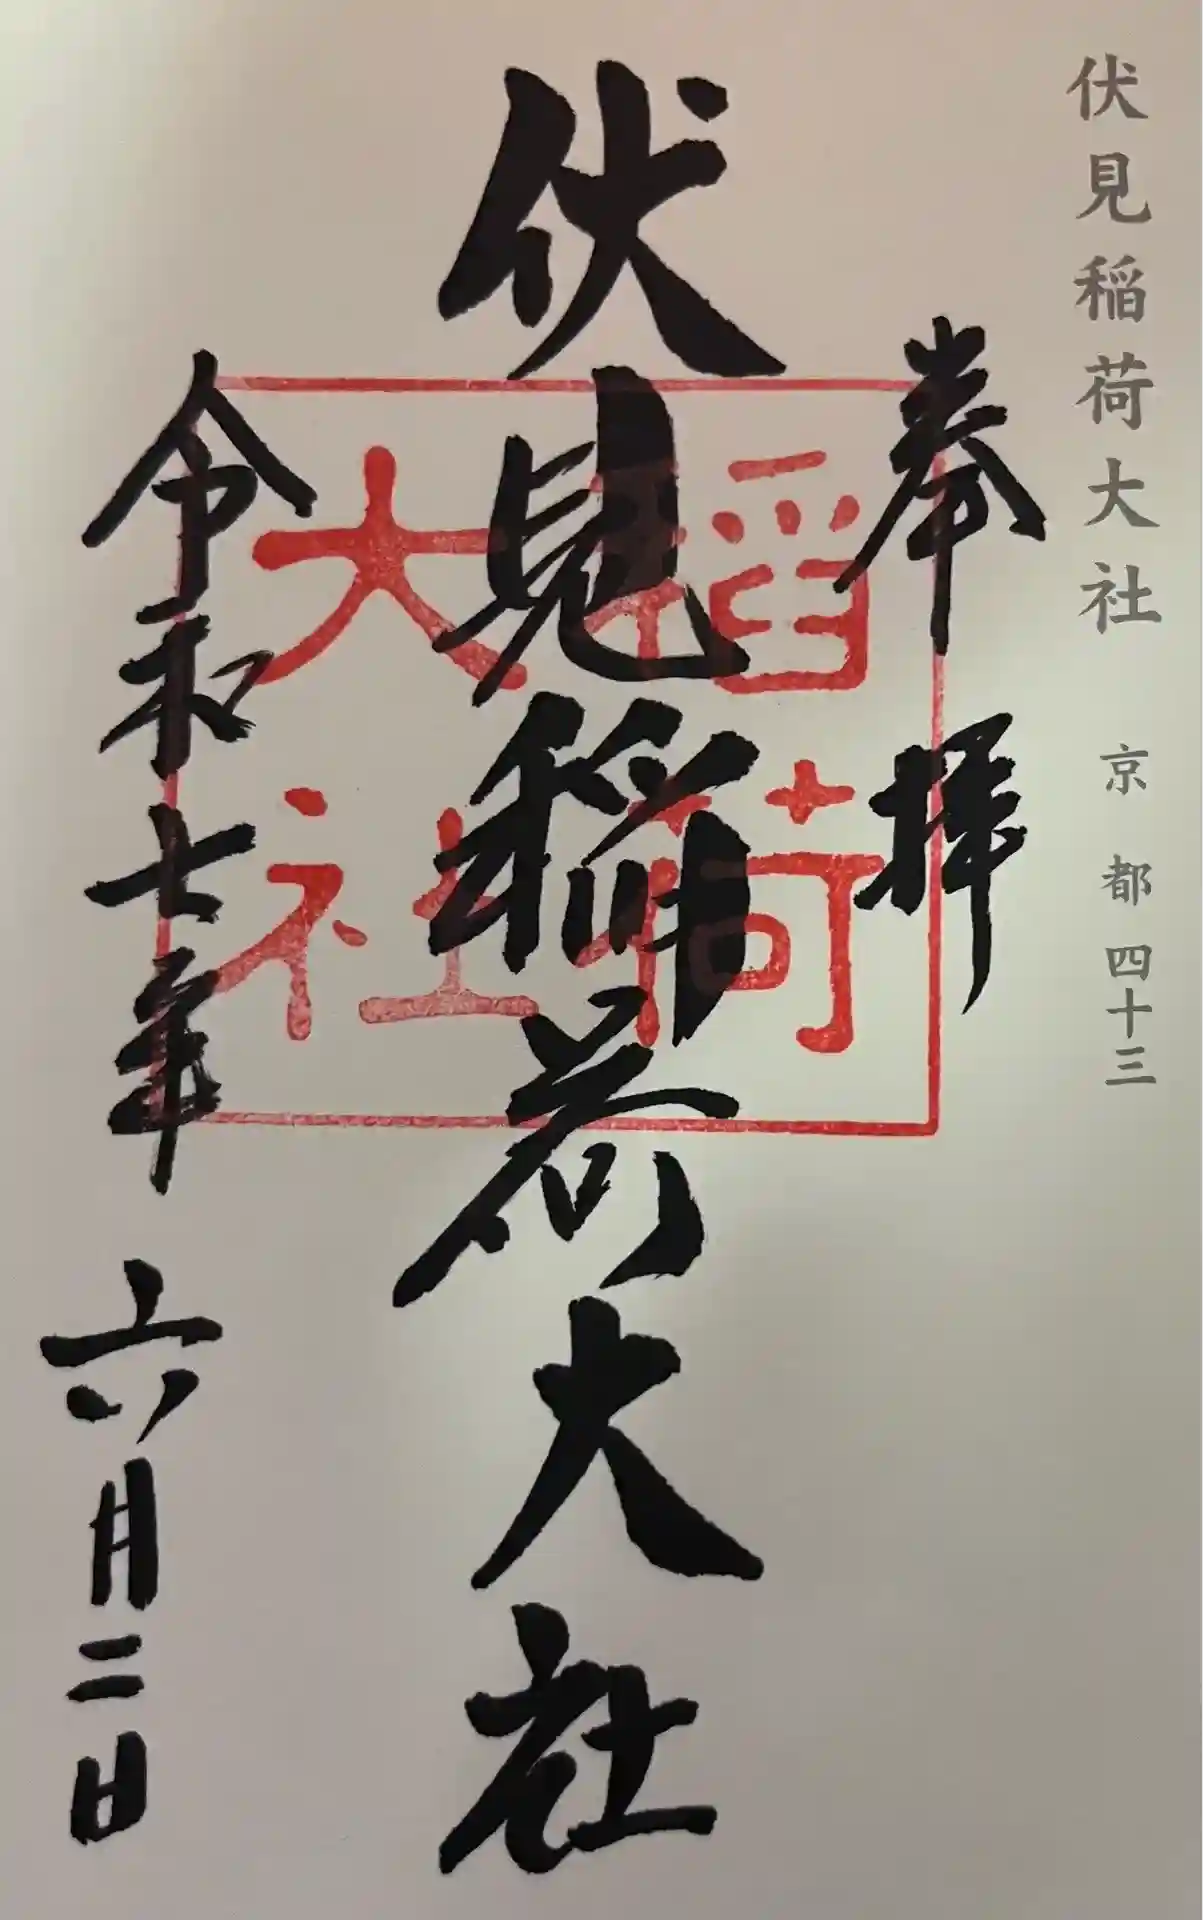 伏見稲荷大社 京都 四十三
奉拝
伏見稲荷大社
稲荷
大社
令和七年 六月二日